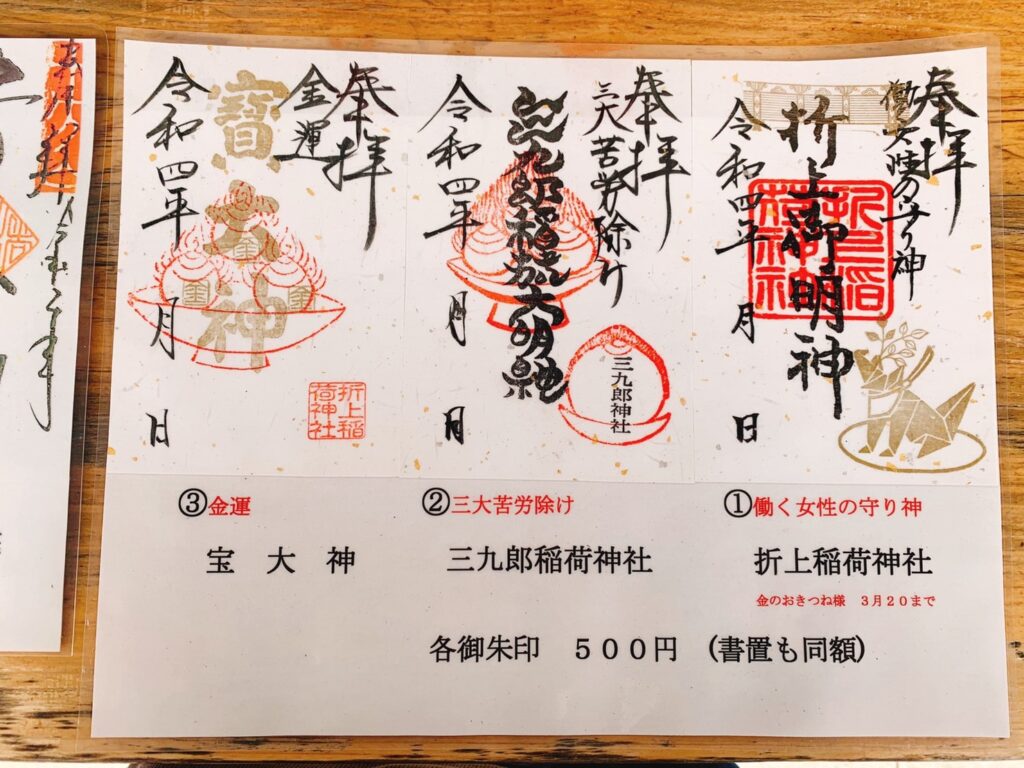 奉拝
働く女性の守り神
折上御明神
折上稲荷神社
令和四年 月 日
奉拝
三大苦労除け
三九郎稲荷大明神
三九郎神社
令和四年 月 日
奉拝
金運
寶大神
金
金
折上稲荷神社
令和四年 月 日
①働く女性の守り神
折上稲荷神社
金のおきつね様 3月20まで
②三大苦労除け
三九郎稲荷神社
③金運
宝 大 神
各御朱印 500円 (書置も同額)